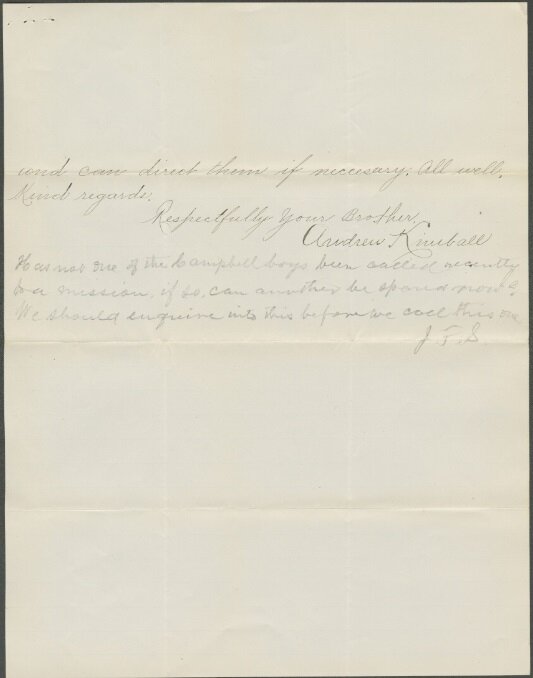 and can direct them if neccesary. All well.
Kind regards.
Respectfully Your Brother
Andrew Kimball
Has not one of the Campbell boys been called recently
to a mission, if so, can another be spared now?
We should enquire into this before we call this one
J. F. S.